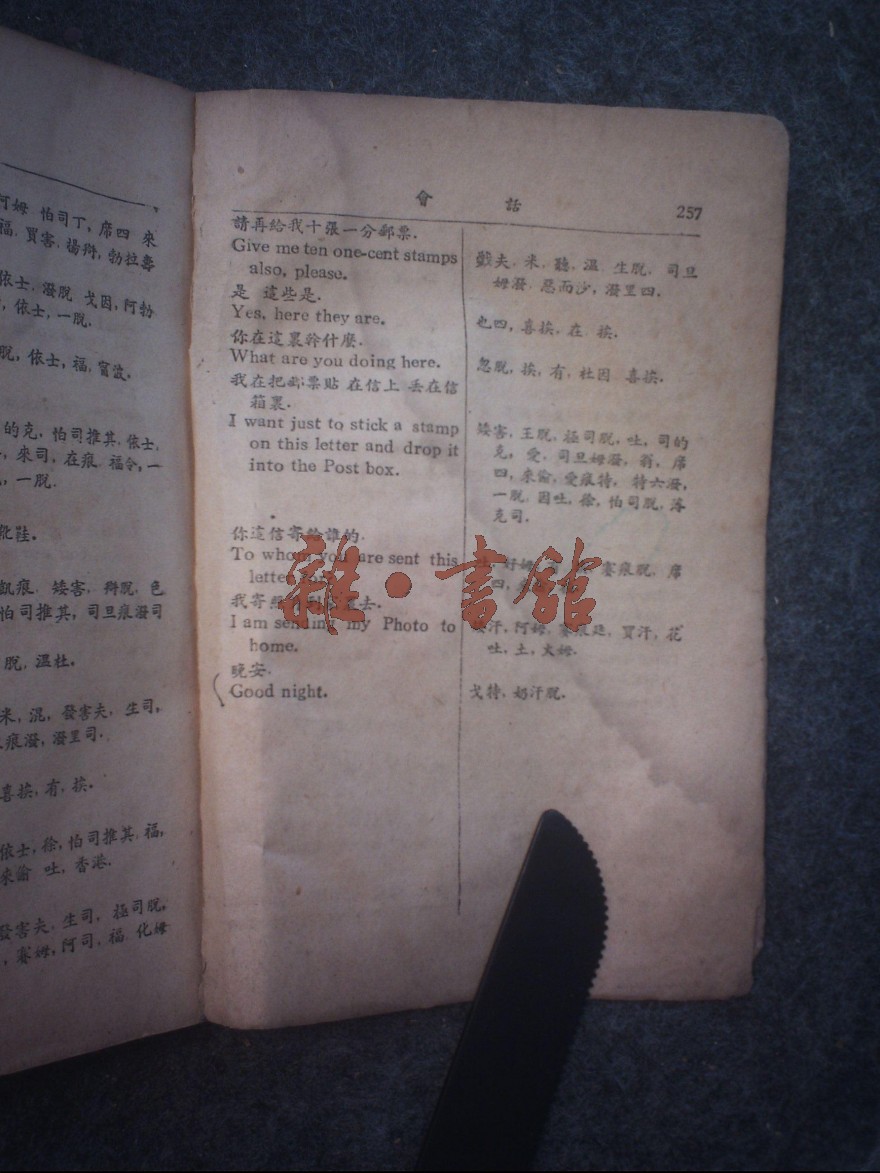 阿姆 怕司丁, 席四 來
福, 買害, 揚辩, 勃拉壽
依士, 潑脫 戈因, 阿勃
依士, 一脫.
脫, 依士, 福, 甯波.
的克, 怕司推其, 依士,
來司, 在痕, 福令, 一
一脫.
靴鞋.
飢痕, 矮害, 辩脫, 色
怕司推其, 司旦痕潑司
脫, 溫杜.
米, 混, 發害夫, 生司,
痕潑, 潑里司.
喜挨, 有, 挨.
依士, 徐, 怕司推其, 福,
來侖 吐, 香港.
發害夫, 生司, 極司脫,
賽姆, 阿司, 福, 化姆
會 話 257
請再給我十張一分郵票.
Give me ten one-cent stamps
also, please.
是 這些是.
Yes, here they are.
你在這裏幹什麽.
What are you doing here.
我在把郵票貼 在信上 丢在信
箱裏.
I want just to stick a stamp
on this letter and drop it
into the Post box.
你這信寄給誰的.
To whom you are sent this
letter
我寄
I am sending my Photo to
home.
晚安.
Good night.
戤夫, 米, 聽, 溫, 生脫, 司旦
姆潑, 惡而沙, 潑里四.
也四, 喜挨, 在, 挨.
忽脫, 挨, 有, 杜因, 喜挨.
矮害, 王脫, 極司脫, 吐, 司的
克, 愛, 司旦姆潑, 翁, 席
四, 來侖, 愛痕特, 特六潑,
一脫, 因吐, 徐, 怕司脫, 落
克司.
好姆 賽痕脫, 席
四,
汗, 阿姆, 賽痕廷, 買汗, 花
吐, 土, 火姆.
戈特, 奶汗脫.
雜·書館